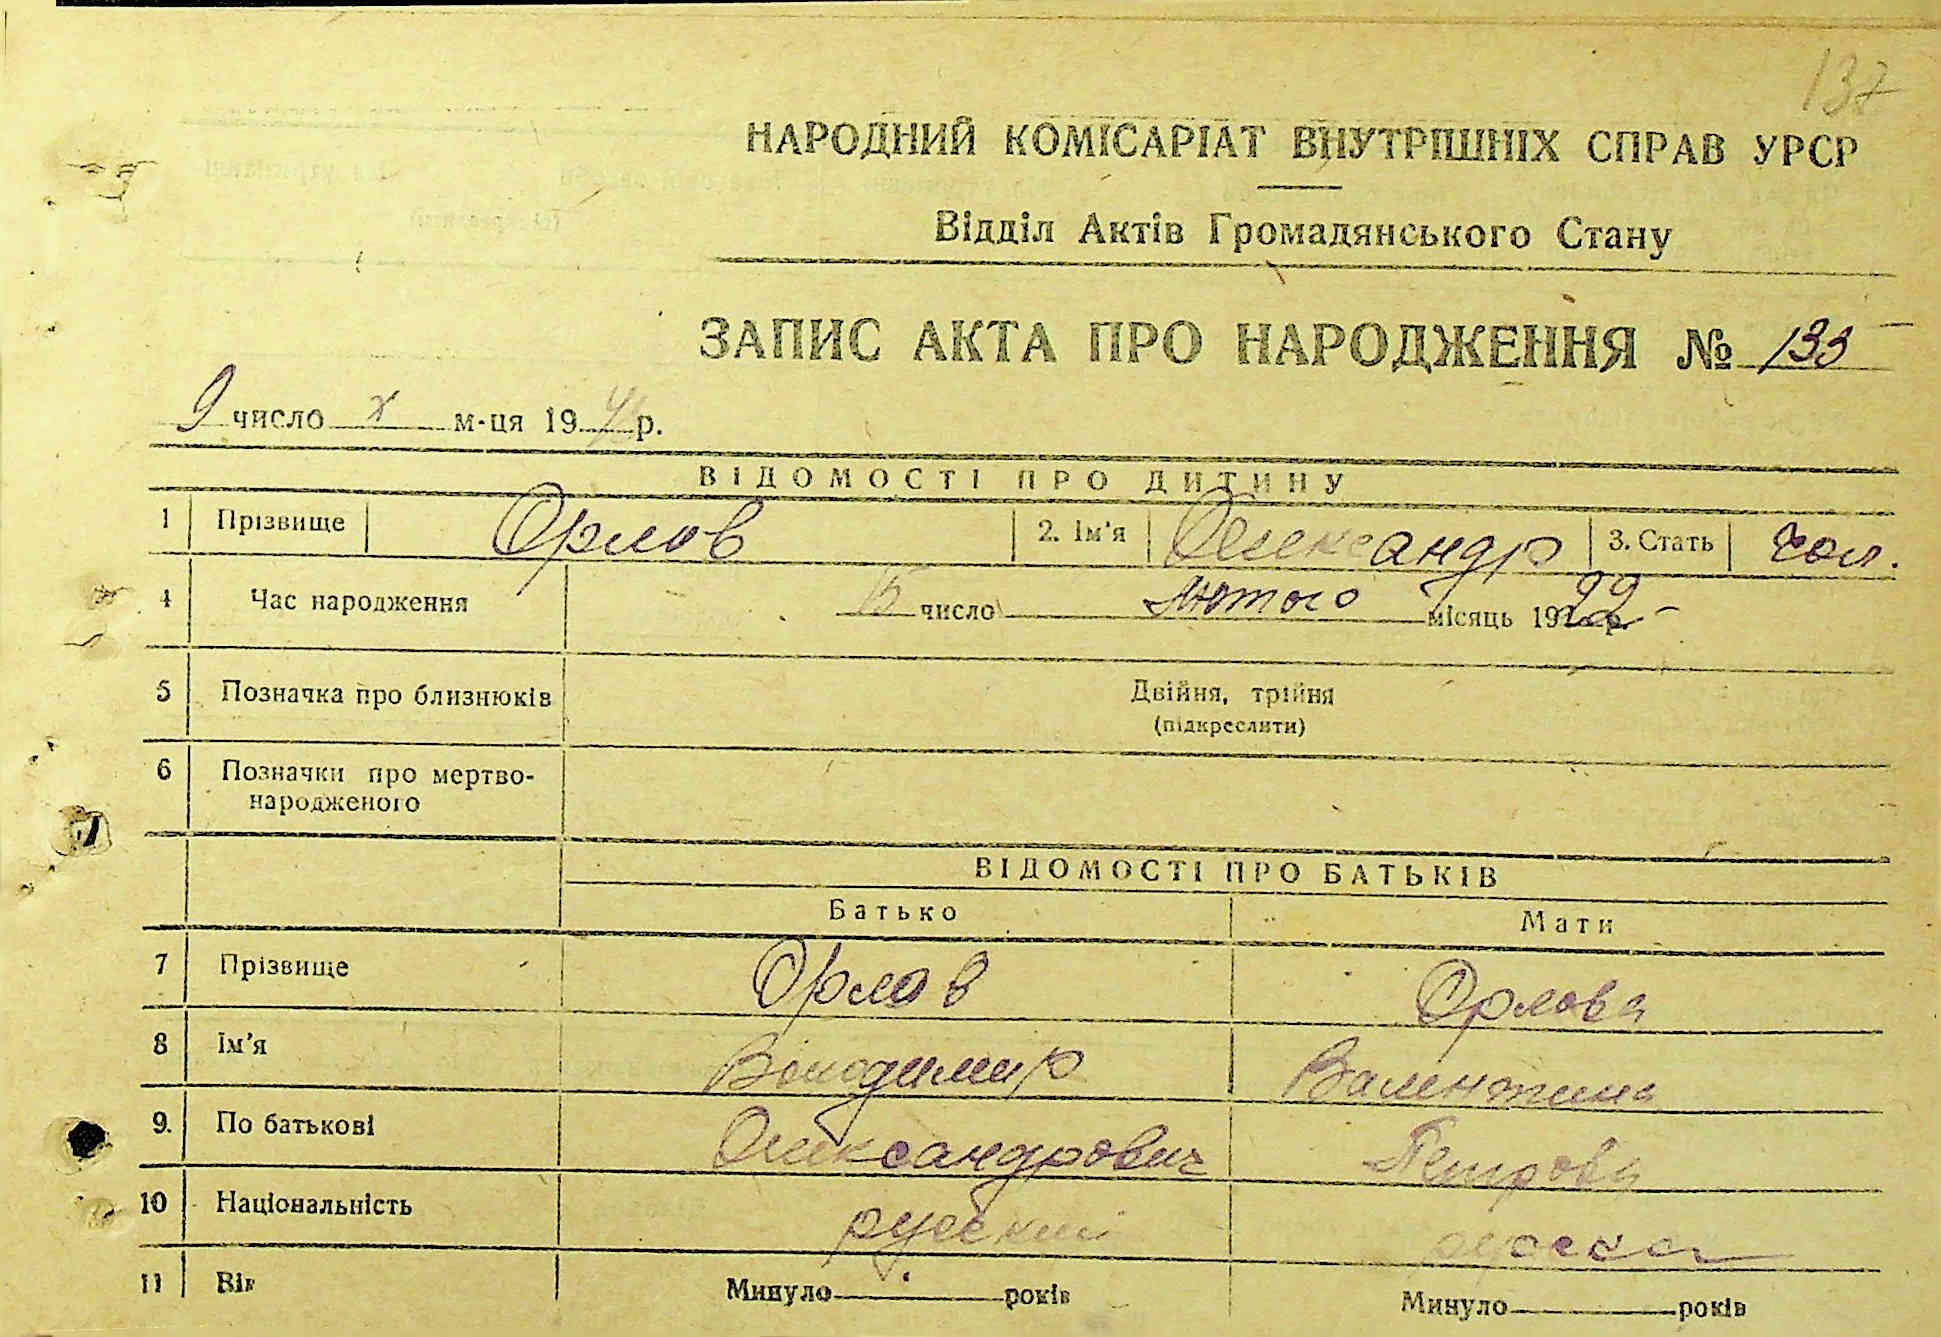 137
НАРОДНИЙ КОМІСАРІАТ ВНУТРІШНІХ СПРАВ УРСР
Відділ Актів Громадянського Стану
ЗАПИС АКТА ПРО НАРОДЖЕННЯ № 133
9 число X м-ця 19 р.
ВІДОМОСТІ ПРО ДИТИНУ
1 Прізвище Орлов 2. Ім'я Олександр 3. Стать чол.
4 Час народження 15 число лютого місяць 1922 р.
5 Позначка про близнюків Двійня, трійня
(підкреслити)
6 Позначки про мертво-
народженого
ВІДОМОСТІ ПРО БАТЬКІВ
Батько Мати
7 Прізвище Орлов Орлова
8 Ім'я Володимир Валентина
9. По батькові Олександрович Петрова
10 Національність руський руска
11 Вік Минуло років Минуло років